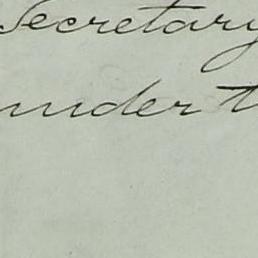 Secretary
under t